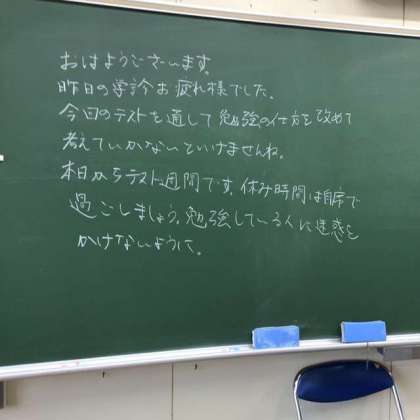 おはようございます。
昨日の学診お疲れ様でした。
今回のテストを通して勉強の仕方を改めて
考えていかないといけませんね。
本日からテスト週間です。休み時間は自席で
過ごしましょう。勉強している人に迷惑を
かけないように。